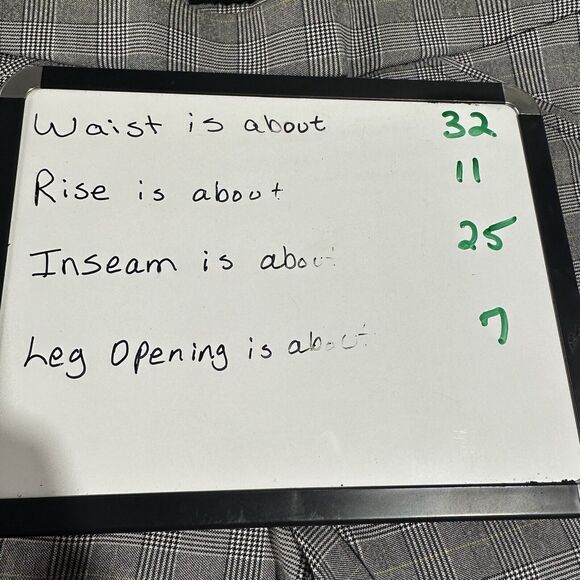 Waist is about 32
Rise is about 11
Inseam is about 25
Leg Opening is about 7